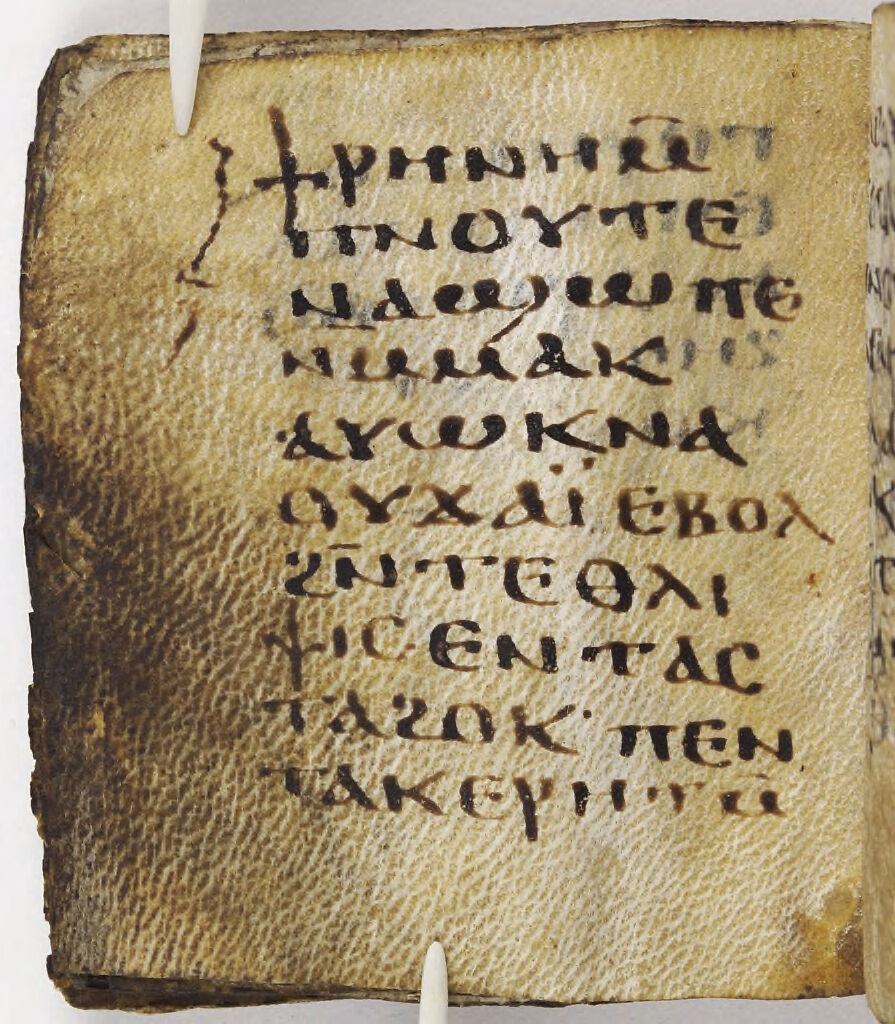 ϯⲣⲏⲛⲏⲙ̄
ⲡⲛⲟⲩⲧⲉ
ⲛⲁϣⲱⲡⲉ
ⲛⲙⲙⲁⲕ
ⲁⲩⲱⲕⲛⲁ
ⲟⲩϫⲁⲓ̈ⲉⲃⲟⲗ
ϩⲛ̄ⲧⲉⲑⲗⲓ
ⲯⲓⲥⲉⲛⲧⲁⲥ
ⲧⲁϩⲟⲕ· ⲡⲉⲛ
ⲧⲁⲕⲉⲣⲏⲧⲙ̄